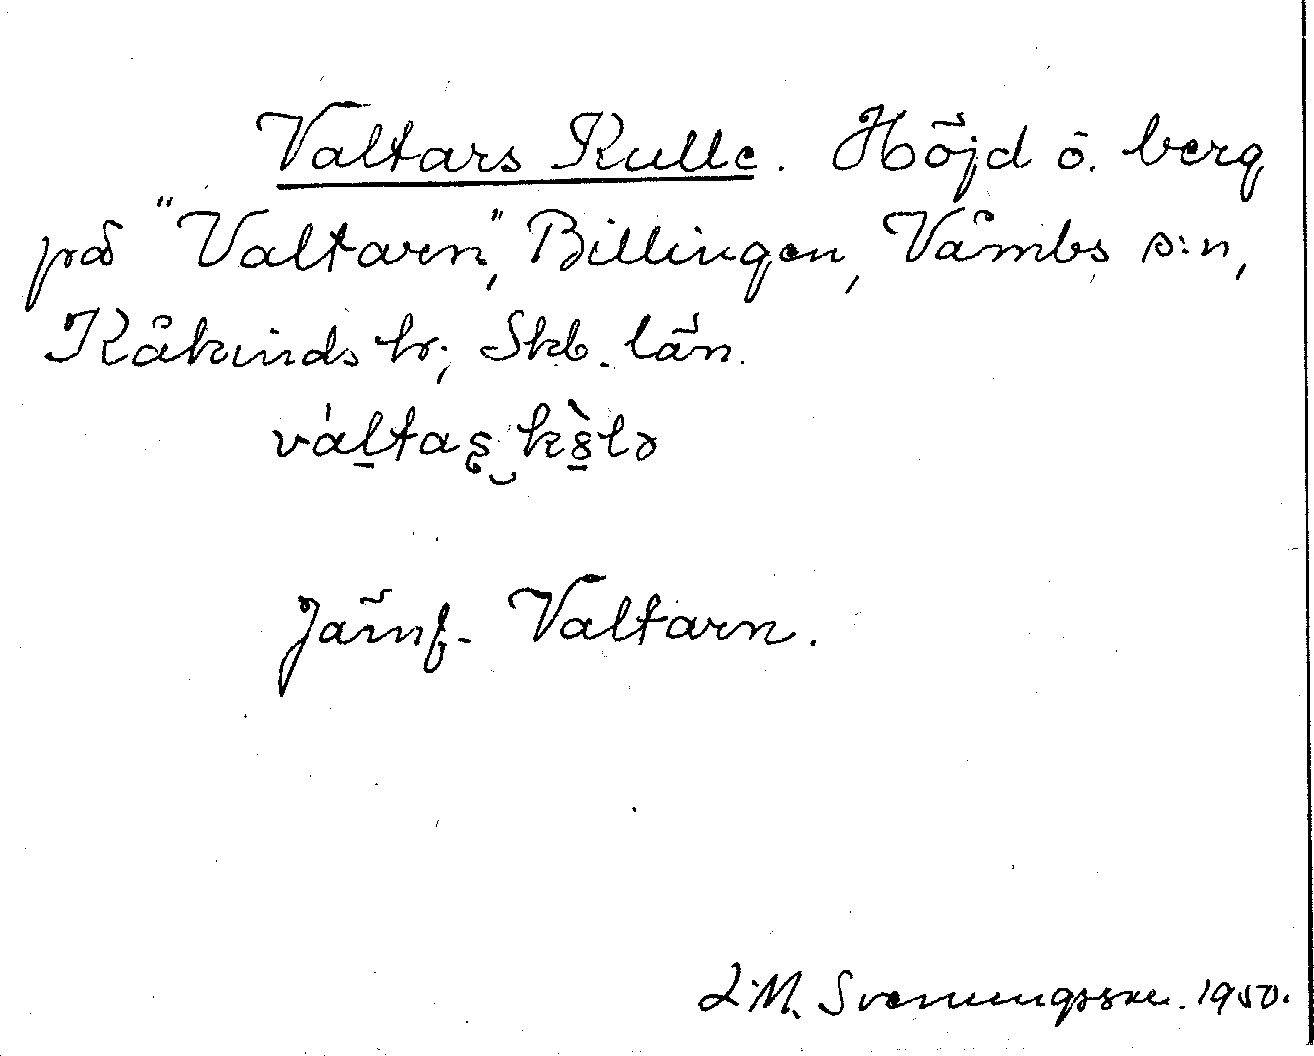 Valtars Kulle. Höjd o. berg
på "Valtarn", Billingen, Våmbs s:n,
Kåkinds hr; Skb. län.
Jämf. Valtarn.
L.M. Svenungsson. 1950.